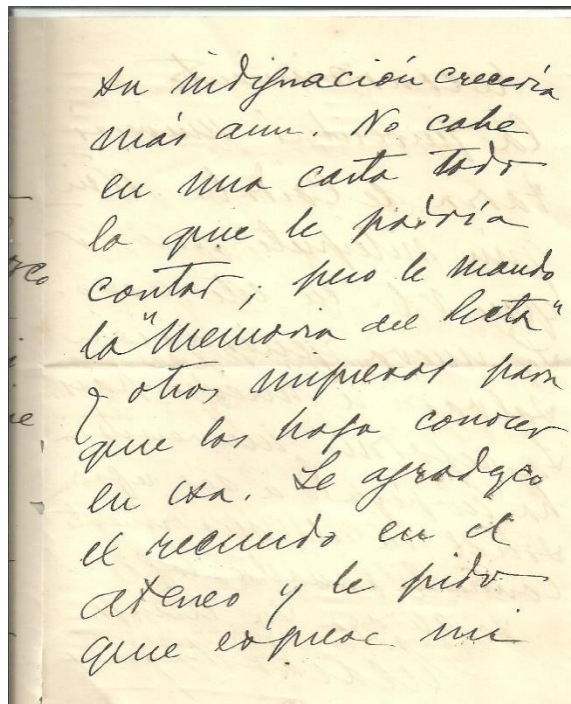 su indignación crecería
más aun. No cabe
en una carta todo
lo que le podría
contar; pero le mando
la "Memoria del
y otros impresos para
que los haga conocer
en esa. Le agradezco
el recuerdo en el
Ateneo y le pido
que exprese mi